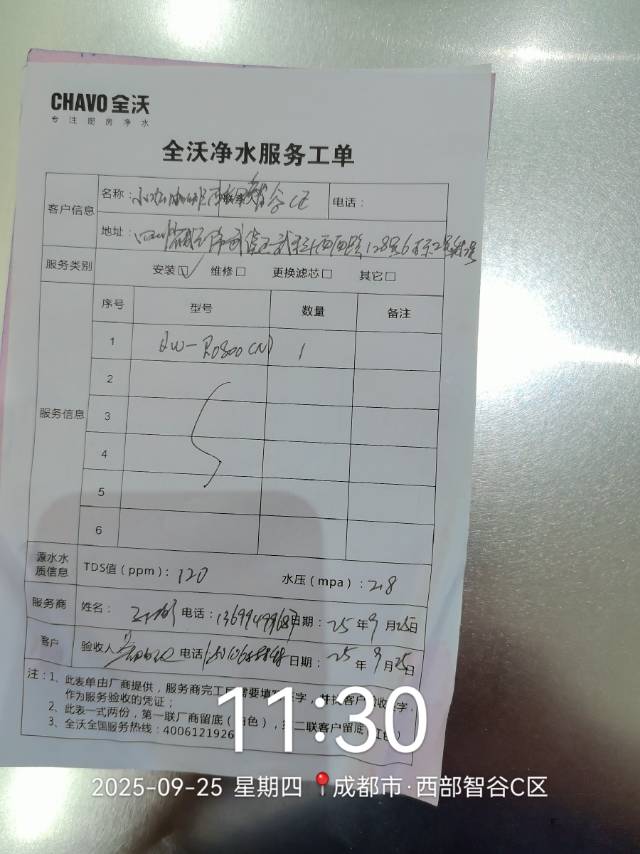 CHAVO 全沃
专注厨房净水
全沃净水服务工单
客户信息
名称： 电话：
地址： 四川省成都市武侯区武科西四路128号6栋
服务类别 安装☑ 维修□ 更换滤芯□ 其它□
服务信息
序号 型号 数量 备注
1 QW-RO800(N) 1
2
3
4
5
6
源水水质信息 TDS值（ppm）：120 水压（mpa）：2.8
服务商 姓名： 电话： 日期：25年9月25日
客户 验收人 电话 日期：25年9月25日
注：1、此表单由厂商提供，服务商完工 需要填 字，
作为服务验收的凭证；
2、此表一式两份，第一联厂商留底（ 色），第二联客户留底（红色）
3、全沃全国服务热线：4006121926
11:30
2025-09-25 星期四 成都市·西部智谷C区